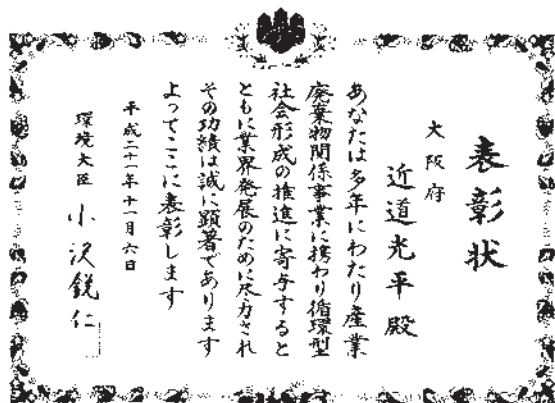 表彰状
大阪府
近道光平殿
あなたは多年にわたり産業
廃棄物関係事業に携わり循環型
社会形成の推進に寄与すると
ともに業界発展のために尽力され
その功績は誠に顕著であります
よってここに表彰します
平成二十一年十一月六日
環境大臣 小沢鋭仁